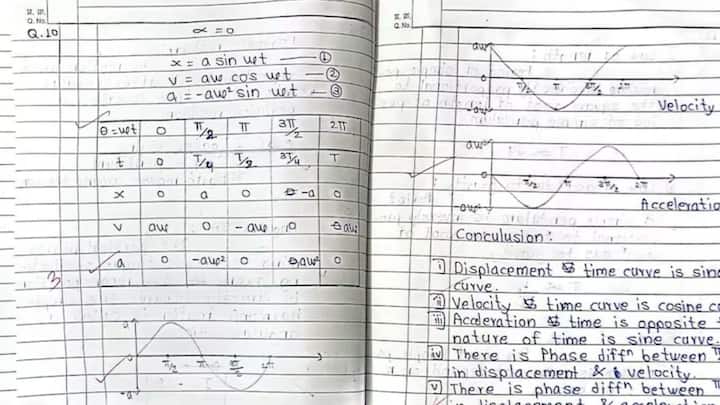 Q.No.
Q.10
α = 0
x = a sin ωt — ①
v = aω cos ωt — ②
a = -aω² sin ωt — ③
θ = ωt 0 π/2 π 3π/2 2π
t 0 T/4 T/2 3T/4 T
x 0 a 0 -a 0
v aω 0 -aω 0 aω
a 0 -aω² 0 aω² 0
3
a
0
-a
π/2 π 3π/2 2π
Q.No.
aω
0
-aω
π/2 π 3π/2 2π
Velocity
aω²
0
-aω²
π/2 π 3π/2 2π
Acceleratio
Conculusion :
i) Displacement time curve is sine
curve.
ii) Velocity time curve is cosine c
iii) Accleration time is opposite
nature of time is sine curve.
iv) There is Phase diffⁿ between
in displacement & velocity.
v) There is phase diffⁿ between